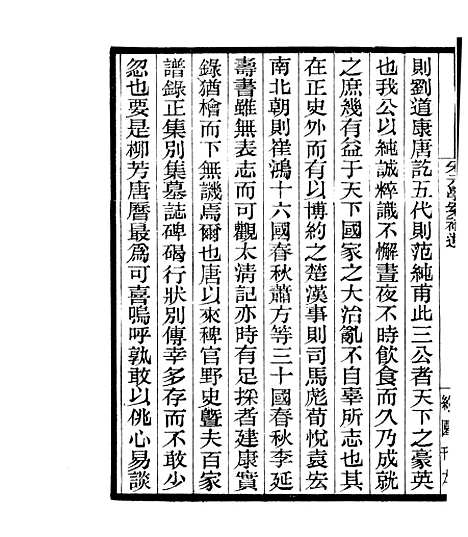 則劉道康唐訖五代則范純甫此三公者天下之豪英
也我公以純誠粹識不懈晝夜不時飲食而久乃成就
之庶幾有益于天下國家之大治亂不自辜所志也其
在正史外而有以博約之楚漢事則司馬彪荀悅袁宏
南北朝則崔鴻十六國春秋蕭方等三十國春秋李延
壽書雖無表志而可觀太清記亦時有足採者建康實
錄猶檜而下無譏焉爾也唐以來稗官野史暨夫百家
譜錄正集別集墓誌碑碣行狀別傳幸多存而不敢少
忽也要是柳芳唐曆最爲可喜嗚呼孰敢以佻心易談